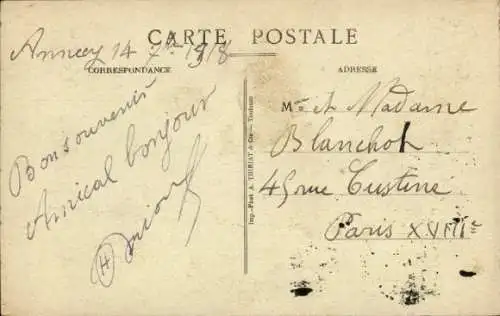 CARTE POSTALE
Annecy 14 7bre 1918
CORRESPONDANCE
ADRESSE
Bon souvenir
Amical bonjour
Mr et Madame
Blanchot
49 rue Custine
Paris XVIIIe
Imp.-Phot A. THIRIAT & Cie - Toulouse